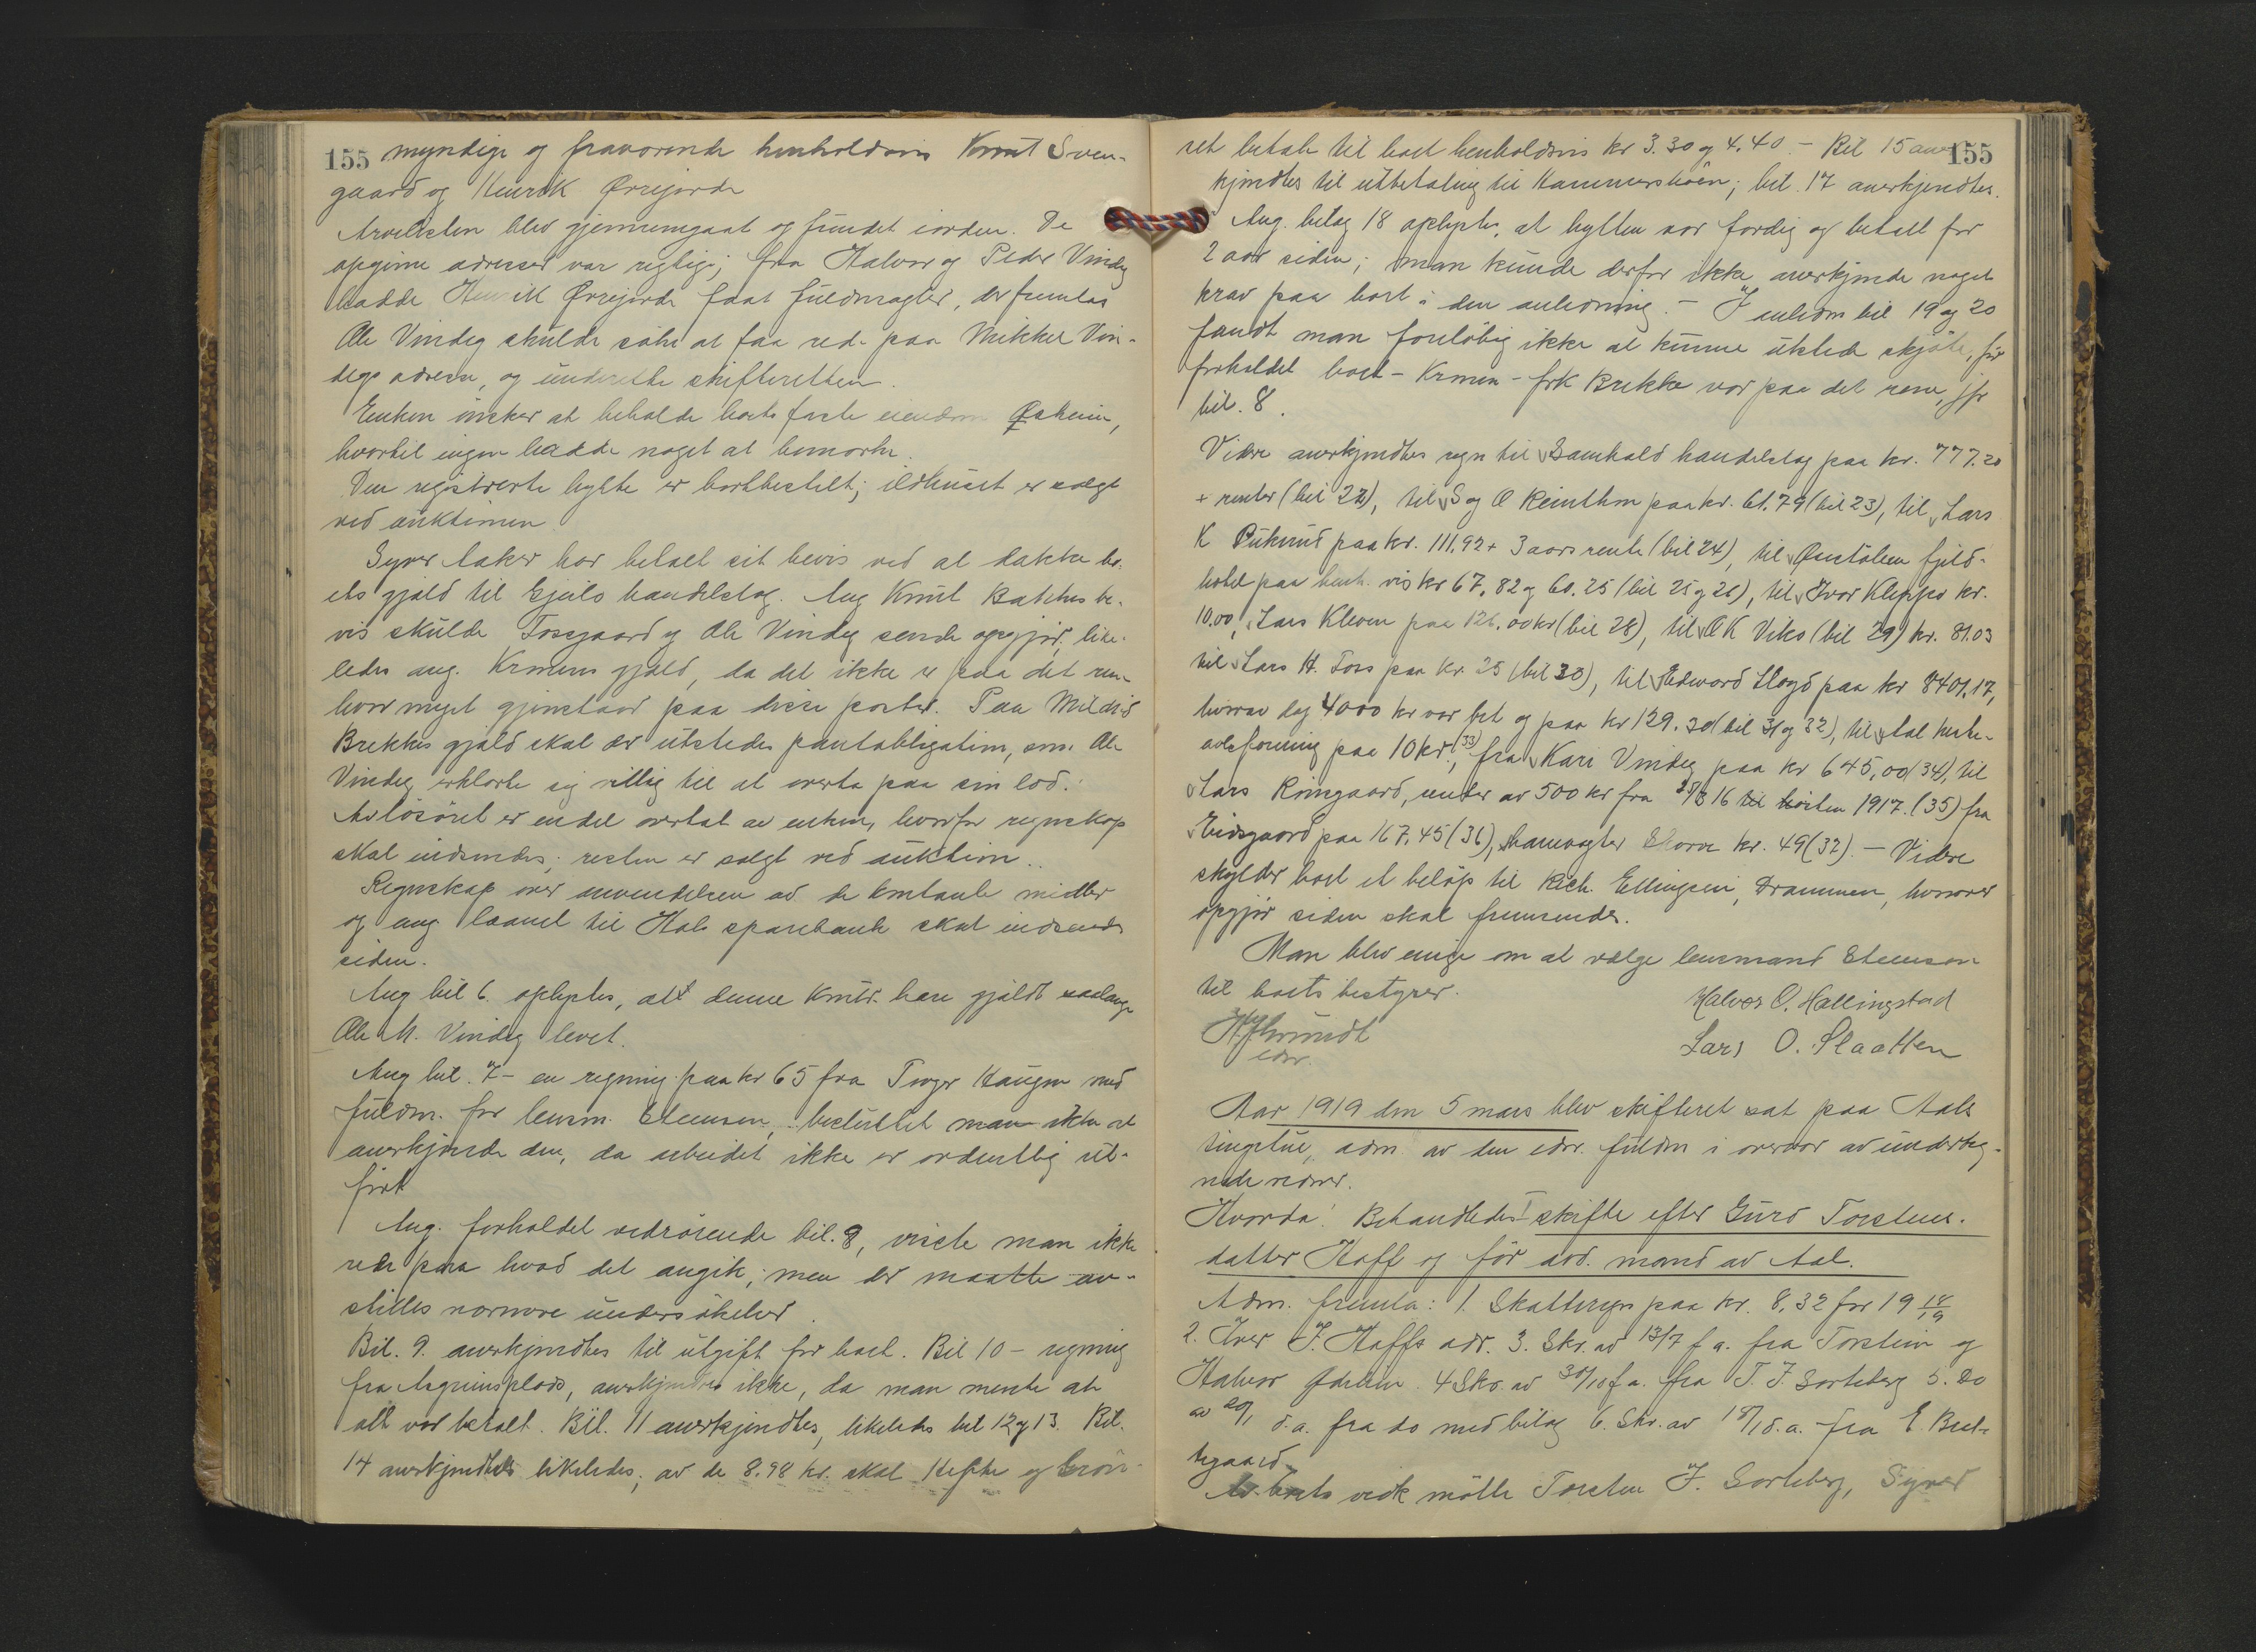 155 myndige og fraværende henholdsvis Knut Sven-
gaard og Henrik Ørrejorde
Arvelisten blev gjennemgaat og fundet iorden. De
opgivne adresser var rigtige; fra Halvor og Peder Vindeg
hadde Henrik Ørrejorde faat fuldmagter, der fremlas
Ole Vindeg skulde søke at faa rede paa Mikkel Vin-
degs adresse, og underrette skifteretten.
Enken ønsker at beholde boets faste eiendom Øskein,
hvortil ingen hadde noget at bemerke.
Den registrerte hytte er bortbestilt; ildhuset er solgt
ved auktionen
Syver Aaker har betalt sit bevis ved at dække bo-
ets gjæld til Gjeilo handelslag. Ang Knut Bakkes be-
vis skulde Tossgaard og Ole Vindeg sende opgjør, like-
ledes ang. Krmens gjæld, da det ikke er paa det rene
hvor meget gjenstaar paa disse poster. Paa Mildrid
Brekkes gjæld skal der utstedes pantobligation, som Ole
Vindeg erklærte sig villig til at overta paa sin lod.
Av løsøret er endel overtat av enken, hvorfor regnskap
skal indsendes; resten er solgt ved auktion.
Regnskap over anvendelsen av de kontante midler
og ang laanet til Hols sparebank skal indsendes
siden.
Ang bil 6. oplystes, at denne kontr. bare gjaldt saalænge
Ole M. Vindeg levet.
Ang bil. 7 - en regning paa kr 65 fra Torger Haugen med
fuldm. for lensm. Stensen, besluttet man ikke at
anerkjende den, da arbeidet ikke er ordentlig ut-
ført
Ang. forholdet vedrørende bil. 8, visste man ikke
rede paa hvad det angik; men der maatte an-
stilles nærmere undersøkelser.
Bil. 9. anerkjendtes til utgift for boet. Bil 10 - regning
fra Asgrimsplads, anerkjendtes ikke, da man mente at
alt var betalt. Bil. 11 anerkjendtes, likeledes bil 12 og 13. Bil.
14 anerkjendtes likeledes; av de 8.98 kr. skal Hefte og Grøn-
155
ret betale til boet henholdsvis kr 3.30 og 4.40. - Bil 15 aner-
kjendtes til utbetaling til Hammersbøen; bil. 17 anerkjendtes.
Ang. bilag 18 oplystes, at hytten var færdig og betalt for
2 aar siden; man kunde derfor ikke anerkjende noget
krav paa boet i den anledning. - I anledn bil 19 og 20
fandt man foreløbig ikke at kunne utstede skjøte, før
forholdet boet - Krmen - frk Brekke var paa det rene, jfr
bil. 8.
Videre anerkjendtes regn til Samhald handelslag paa kr. 777.20
+ renter (bil 22), til S og O Reinthon paa kr. 61.79 (bil 23), til Lars
K Pukerud paa kr. 111.92 + 3 aars rente (bil 24), til Ørstølen fjeld-
hotel paa henh. vis kr 67,82 og 60.25 (bil 25 og 26), til Ivar Kleppo kr.
10.00, Lars Kleven paa 126.00 kr (bil 28), til O K Viko (bil 29) kr. 81.03
til Lars H. Foss paa kr. 25 (bil 30), til Edward Lloyd paa kr 8401.17,
hvorav dog 4000 kr var bet og paa kr 129.30 (bil 31 og 32), til Aal heste-
avlsforening paa 10 kr. (33), fra Kari Vindeg paa kr 645,00 (34), til
Lars Rimgaard, renter av 500 kr fra 28/3 16 til høsten 1917. (35) fra
Eidsgaard paa 167.45 (36), Skamvogter Skorve kr. 49 (37). - Videre
skylder boet et beløp til Rich. Ellingsen, Drammen, hvorover
opgjør siden skal fremsendes.
Man blev enige om at vælge lensmand Stensen
til boets bestyrer.
Halvor O. Hallingstad
Lars O. Slaatten
edsv.
Aar 1919 den 5 mars blev skifteret sat paa Aals
tingstue, adm av den edsv. fuldm i overvær av underteg-
nede vidner.
Hvorda: Behandledes skifte efter Guro Torsteins-
datter Hoff og før avd. mand av Aal.
Adm. fremla: 1. Skatteregn paa kr. 8.32 for 19 18/19
2. Iver I. Hoffs adr. 3. Skr. av 13/7 f a. fra Torstein og
Halvor Ødelien. 4 Skr. av 30/10 f a. fra T. I. Sorteberg 5. Do
av 20/1 d.a. fra do med bilag 6. Skr. av 18/1 d.a. fra E. Brat-
tegaard
Av boets vedk møtte Torsten I. Sorteberg, Syver